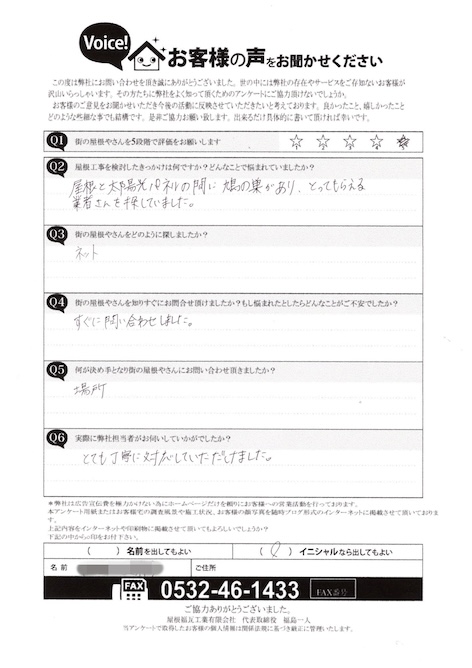 Voice!
お客様の声をお聞かせください
この度は弊社にお問い合わせを頂き誠にありがとうございました。世の中には弊社の存在やサービスをご存知ないお客様が
沢山いらっしゃいます。その方たちに弊社をよく知って頂くためのアンケートにご協力頂けないでしょうか。
お客様のご意見をお聞かせいただき今後の活動に反映させていただきたいと考えております。良かったこと、嬉しかったこと
どのような些細な事でも結構です。是非ご協力お願い致します。出来るだけ具体的に書いて頂ければ幸いです。
Q1 街の屋根やさんを5段階で評価をお願いします ☆ ☆ ☆ ☆ ☆
Q2 屋根工事を検討したきっかけは何ですか？どんなことで悩まれていましたか？
屋根と太陽光パネルの間に鳩の巣があり、とってもらえる
業者さんを探していました。
Q3 街の屋根やさんをどのように探しましたか？
ネット
Q4 街の屋根やさんを知りすぐにお問合せ頂けましたか？もし悩まれたとしたらどんなことがご不安でしたか？
すぐに問い合わせしました。
Q5 何が決め手となり街の屋根やさんにお問い合わせ頂きましたか？
場所
Q6 実際に弊社担当者がお伺いしていかがでしたか？
とても丁寧に対応していただけました。
＊弊社は広告宣伝費を極力かけない為にホームページだけを頼りにお客様への営業活動を行っております。
本アンケート用紙またはお客様宅の調査風景や施工状況、お客様の顔写真を随時ブログ形式のインターネットに掲載させて頂いておりま
す。
上記内容をインターネットや印刷物に掲載させて頂いてもよろしいでしょうか？
下記の中から○印をお付下さい。
（　　）名前を出してもよい （○）イニシャルなら出してもよい
名前 ご住所
FAX 0532-46-1433 FAX番号
ご協力ありがとうございました。
屋根福瓦工業有限会社 代表取締役 福島一人
当アンケートで取得したお客様の個人情報は関係法規に基づき厳正に管理いたします。